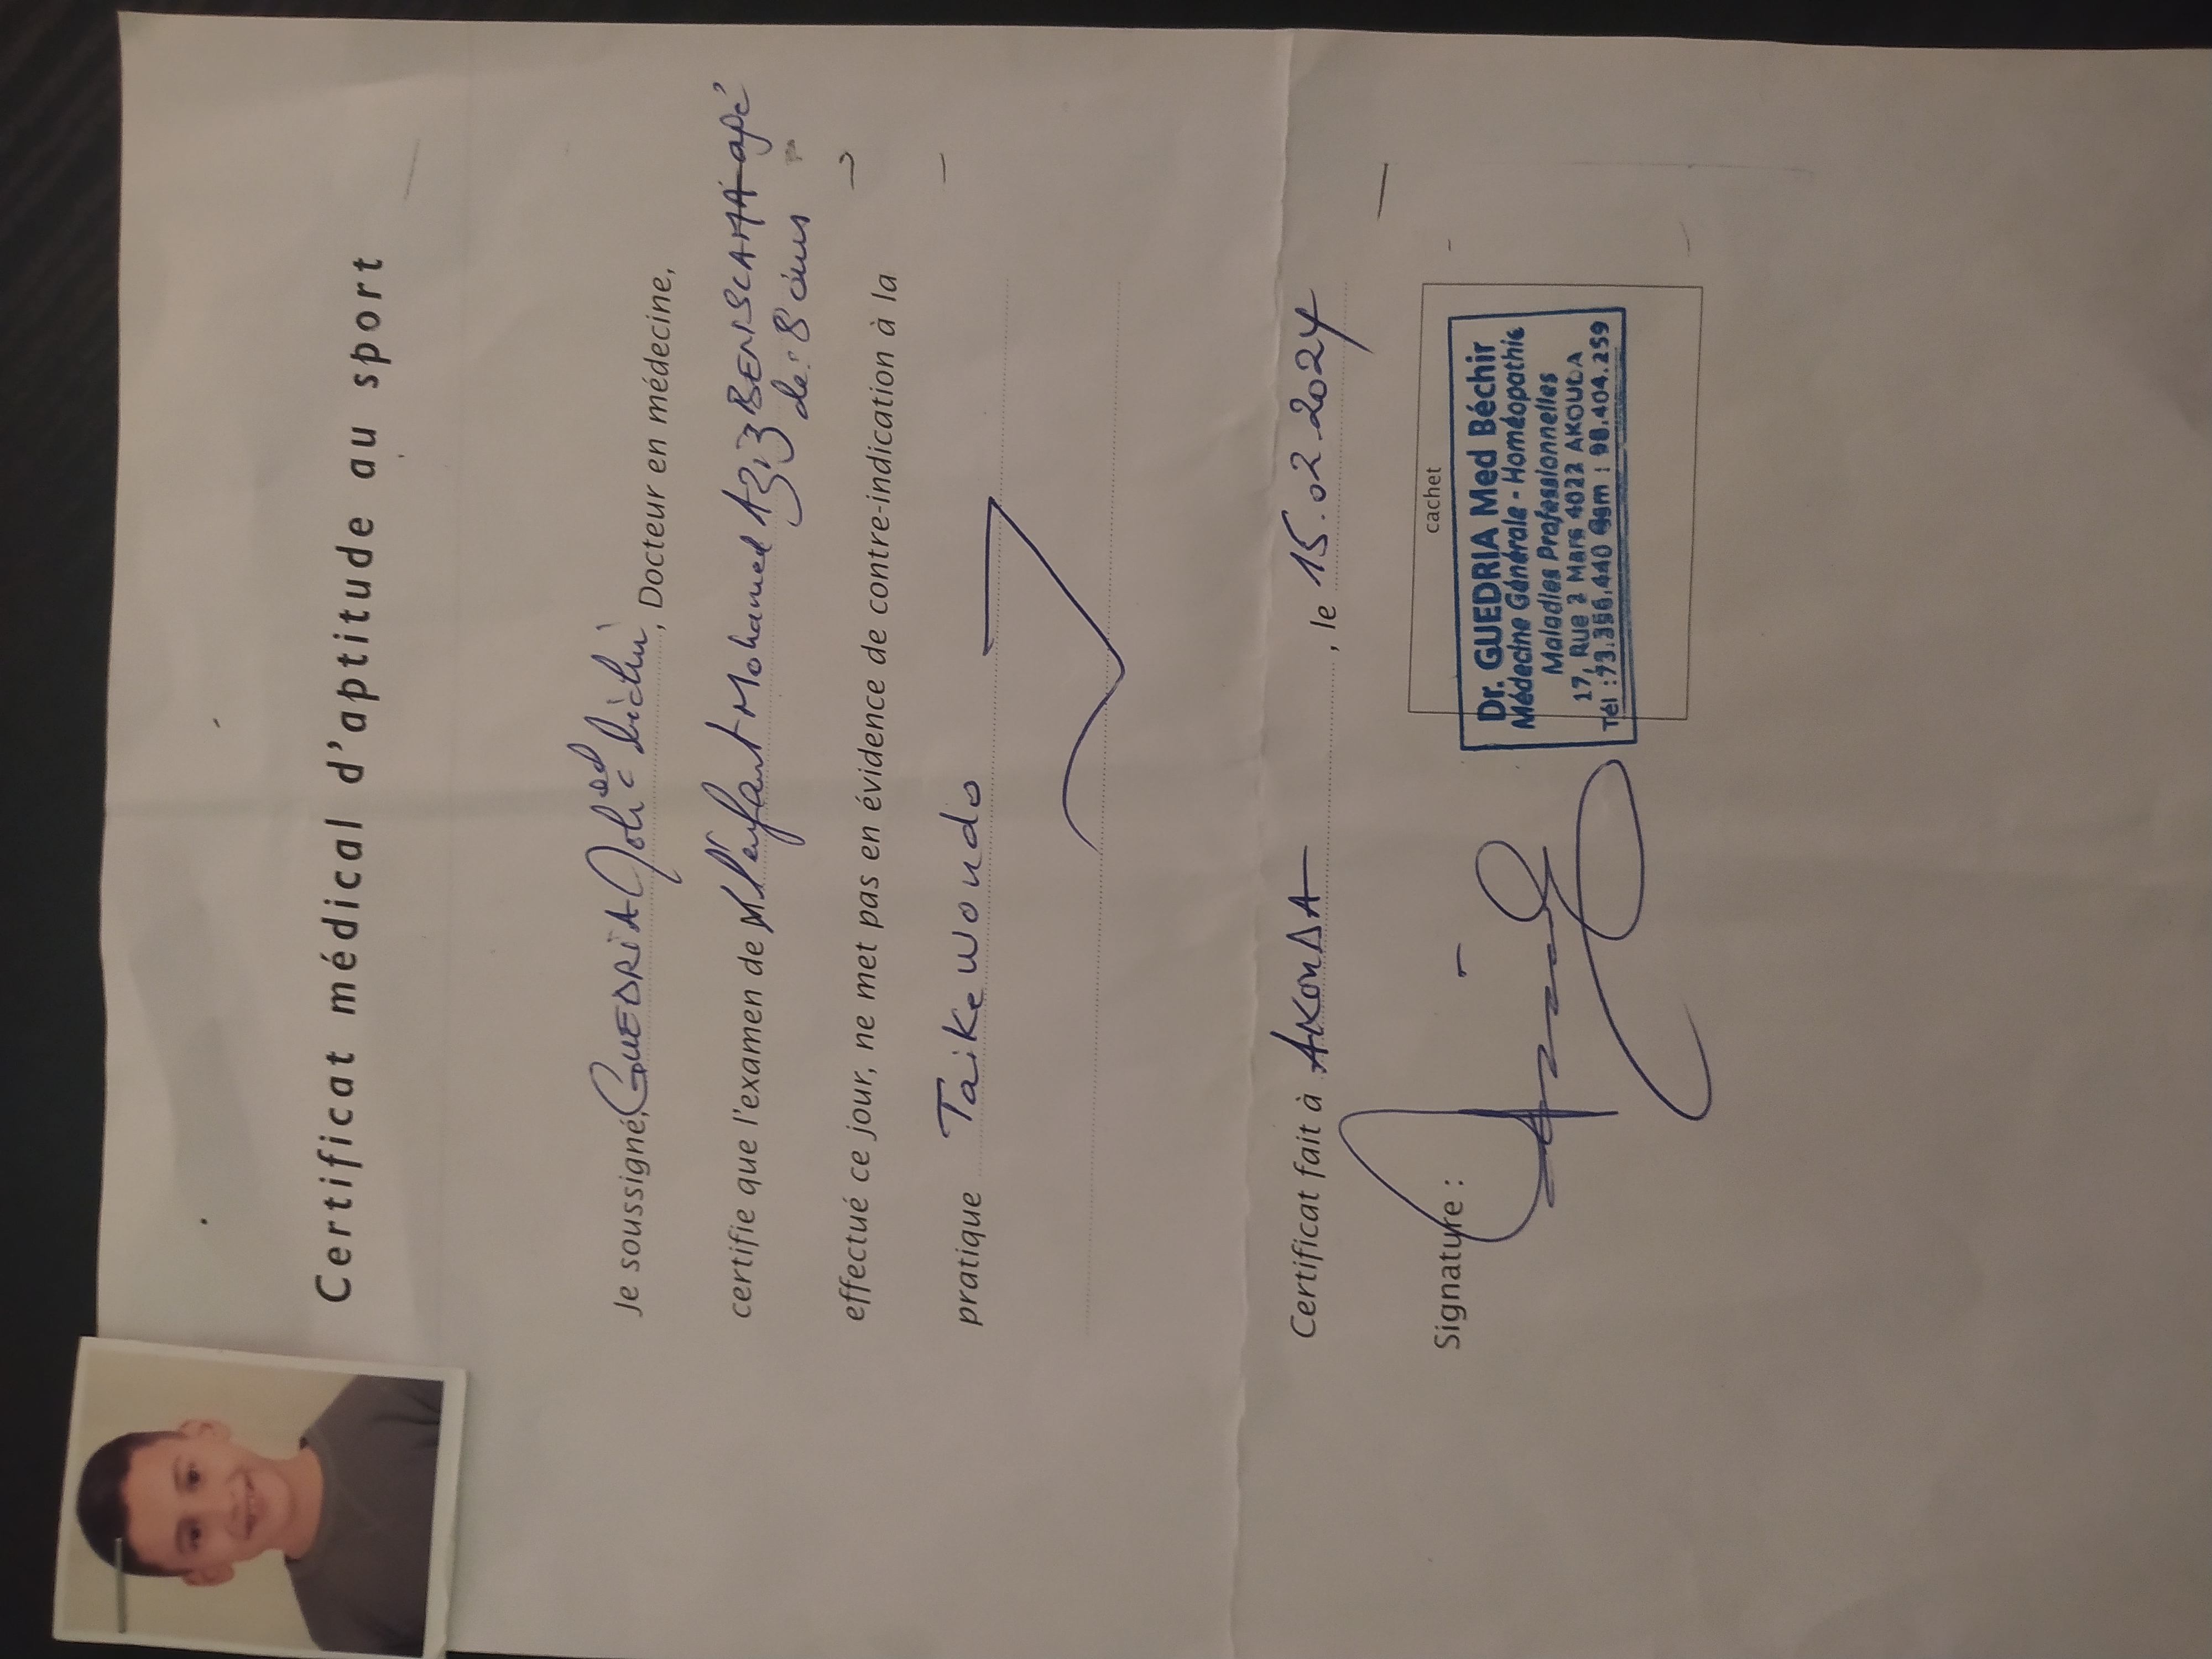 Certificat médical d'aptitude au sport
Je soussigné, GUEDRIA, Docteur en médecine,
certifie que l'examen de l'enfant Mohamed Aziz apé
de: 8 ans
effectué ce jour, ne met pas en évidence de contre-indication à la
pratique Taikewondo
Certificat fait à AKOUDA, le 15.02.2024
Signature :
cachet
Dr. GUEDRIA Med Béchir
Médecine Générale - Homéopathie
Maladies Professionnelles
17, Rue 2 Mars 4022 AKOUDA
Tél : 73.356.440 Gsm : 98.404.259